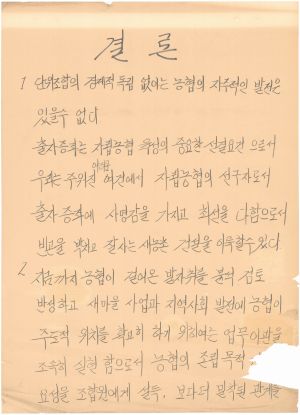 결 론
1 단위조합의 경제적 독립 없이는 농협의 자주적인 발전은
있을수 없다
출자증좌는 자립농협 육성의 중요한 선결요건 으로서
우리는 주위진 여건에서 자립농협의 선구자로서
출자 증좌에 사명감을 가지고 최선을 다함으로서
빈곤을 박차고 잘사는 새농촌 건설을 이룩할수 있다.
2. 지금까지 농협이 걸어온 발자취를 분석 검토
반성하고 새마을 사업과 지역사회 발전에 농협이
주도적 위치를 확고히 하게 위하여는 업무이관을
조속히 실현 함으로서 농협의 존립 목적
요청을 조합원에게 설득, 보다더 밀착된 관계를